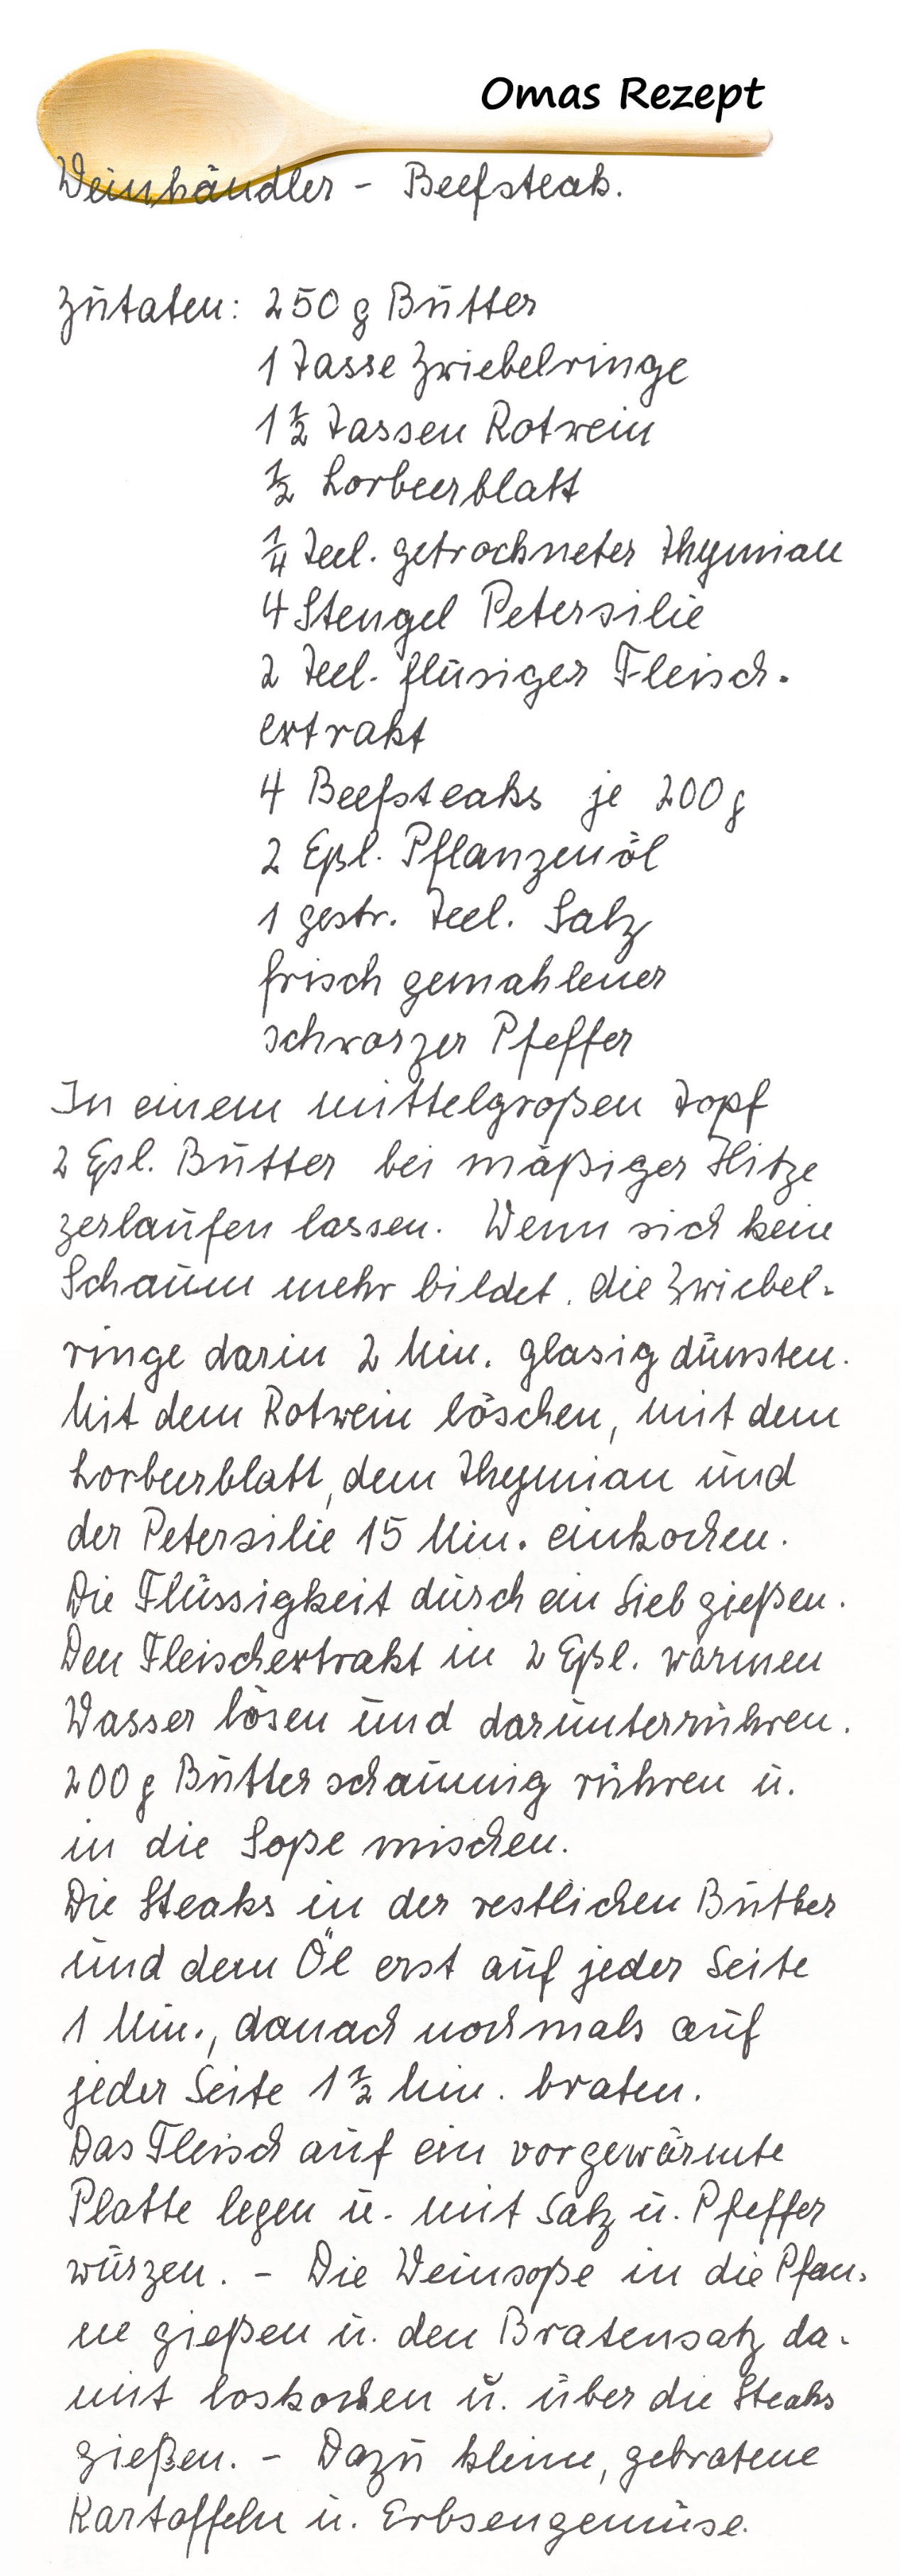 Omas Rezept
Weinhändler - Beefsteak.
Zutaten: 250 g Butter
1 Tasse Zwiebelringe
1 1/2 Tassen Rotwein
1/2 Lorbeerblatt
1/4 Teel. getrockneter Thymian
4 Stengel Petersilie
2 Teel. flüsiger Fleisch-
extrakt
4 Beefsteaks je 200 g
2 Eßl. Pflanzenöl
1 gestr. Teel. Salz
frisch gemahlener
schwarzer Pfeffer
In einem mittelgroßen Topf
2 Eßl. Butter bei mäßiger Hitze
zerlaufen lassen. Wenn sich kein
Schaum mehr bildet, die Zwiebel-
ringe darin 2 Min. glasig dünsten.
Mit dem Rotwein löschen, mit dem
Lorbeerblatt, dem Thymian und
der Petersilie 15 Min. einkochen.
Die Flüssigkeit durch ein Sieb gießen.
Den Fleischextrakt in 2 Eßl. warmen
Wasser lösen und darunterrühren.
200 g Butter schaumig rühren u.
in die Soße mischen.
Die Steaks in der restlichen Butter
und dem Öl erst auf jeder Seite
1 Min., danach nochmals auf
jeder Seite 1 1/2 Min. braten.
Das Fleisch auf ein vorgewärmte
Platte legen u. mit Salz u. Pfeffer
würzen. - Die Weinsoße in die Pfan-
ne gießen u. den Bratensatz da-
mit loskochen u. über die Steaks
gießen. - Dazu kleine, gebratene
Kartoffeln u. Erbsengemüse.